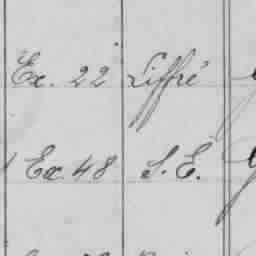 Ex. 22 Liffré
Ex. 48 S. E.